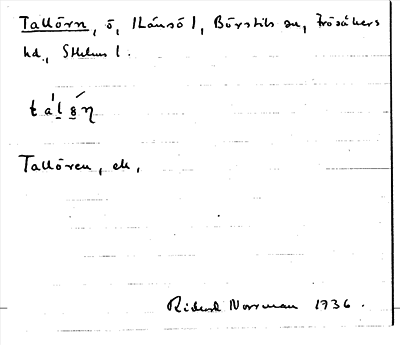 Tallörn, ö, Hånsö l, Börstils sn, Frösåkers
hd., Sthlms l.
Tallören, ek,
Rickard Norrman 1936.